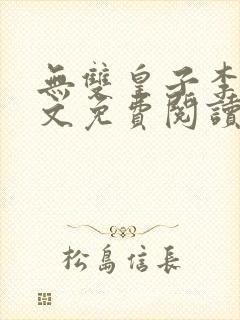 無雙皇子李
文免費閱讀
松島信長